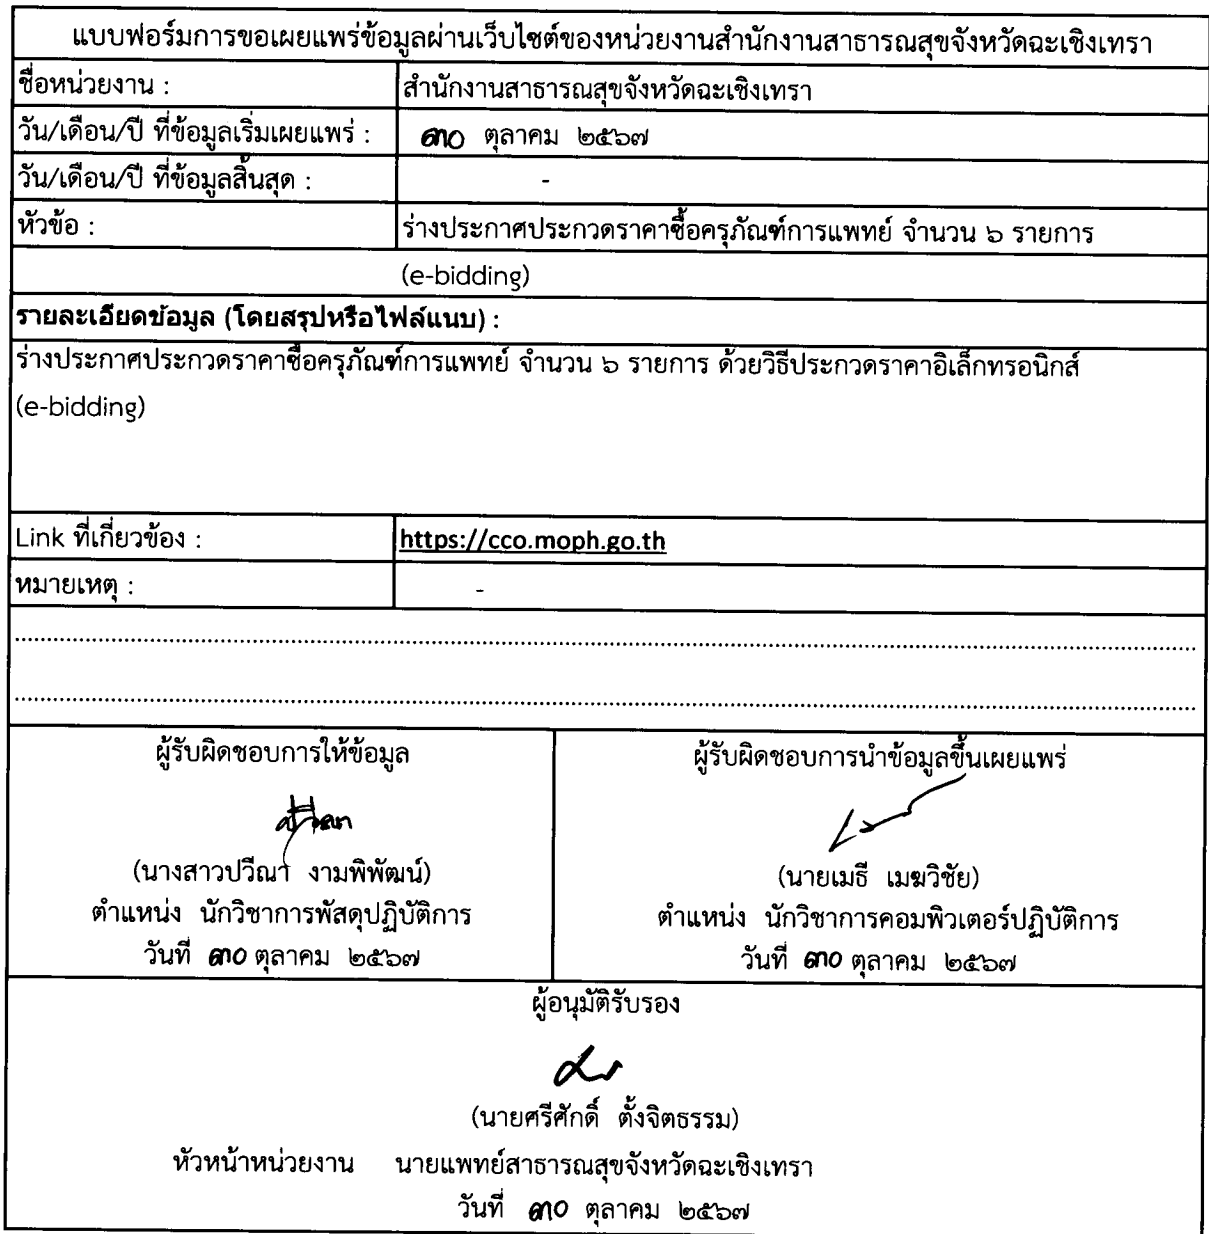 แบบฟอร์มการขอเผยแพร่ข้อมูลผ่านเว็บไซต์ของหน่วยงานสำนักงานสาธารณสุขจังหวัดฉะเชิงเทรา
ชื่อหน่วยงาน : สำนักงานสาธารณสุขจังหวัดฉะเชิงเทรา
วัน/เดือน/ปี ที่ข้อมูลเริ่มเผยแพร่ : ๓๐ ตุลาคม ๒๕๖๗
วัน/เดือน/ปี ที่ข้อมูลสิ้นสุด : -
หัวข้อ : ร่างประกาศประกวดราคาซื้อครุภัณฑ์การแพทย์ จำนวน ๖ รายการ
(e-bidding)
รายละเอียดข้อมูล (โดยสรุปหรือไฟล์แนบ) :
ร่างประกาศประกวดราคาซื้อครุภัณฑ์การแพทย์ จำนวน ๖ รายการ ด้วยวิธีประกวดราคาอิเล็กทรอนิกส์
(e-bidding)
Link ที่เกี่ยวข้อง : https://cco.moph.go.th
หมายเหตุ : -
ผู้รับผิดชอบการให้ข้อมูล
ปวีณา
(นางสาวปวีณา งามพิพัฒน์)
ตำแหน่ง นักวิชาการพัสดุปฏิบัติการ
วันที่ ๓๐ ตุลาคม ๒๕๖๗
ผู้รับผิดชอบการนำข้อมูลขึ้นเผยแพร่
(นายเมธี เมฆวิชัย)
ตำแหน่ง นักวิชาการคอมพิวเตอร์ปฏิบัติการ
วันที่ ๓๐ ตุลาคม ๒๕๖๗
ผู้อนุมัติรับรอง
(นายศรีศักดิ์ ตั้งจิตธรรม)
หัวหน้าหน่วยงาน นายแพทย์สาธารณสุขจังหวัดฉะเชิงเทรา
วันที่ ๓๐ ตุลาคม ๒๕๖๗